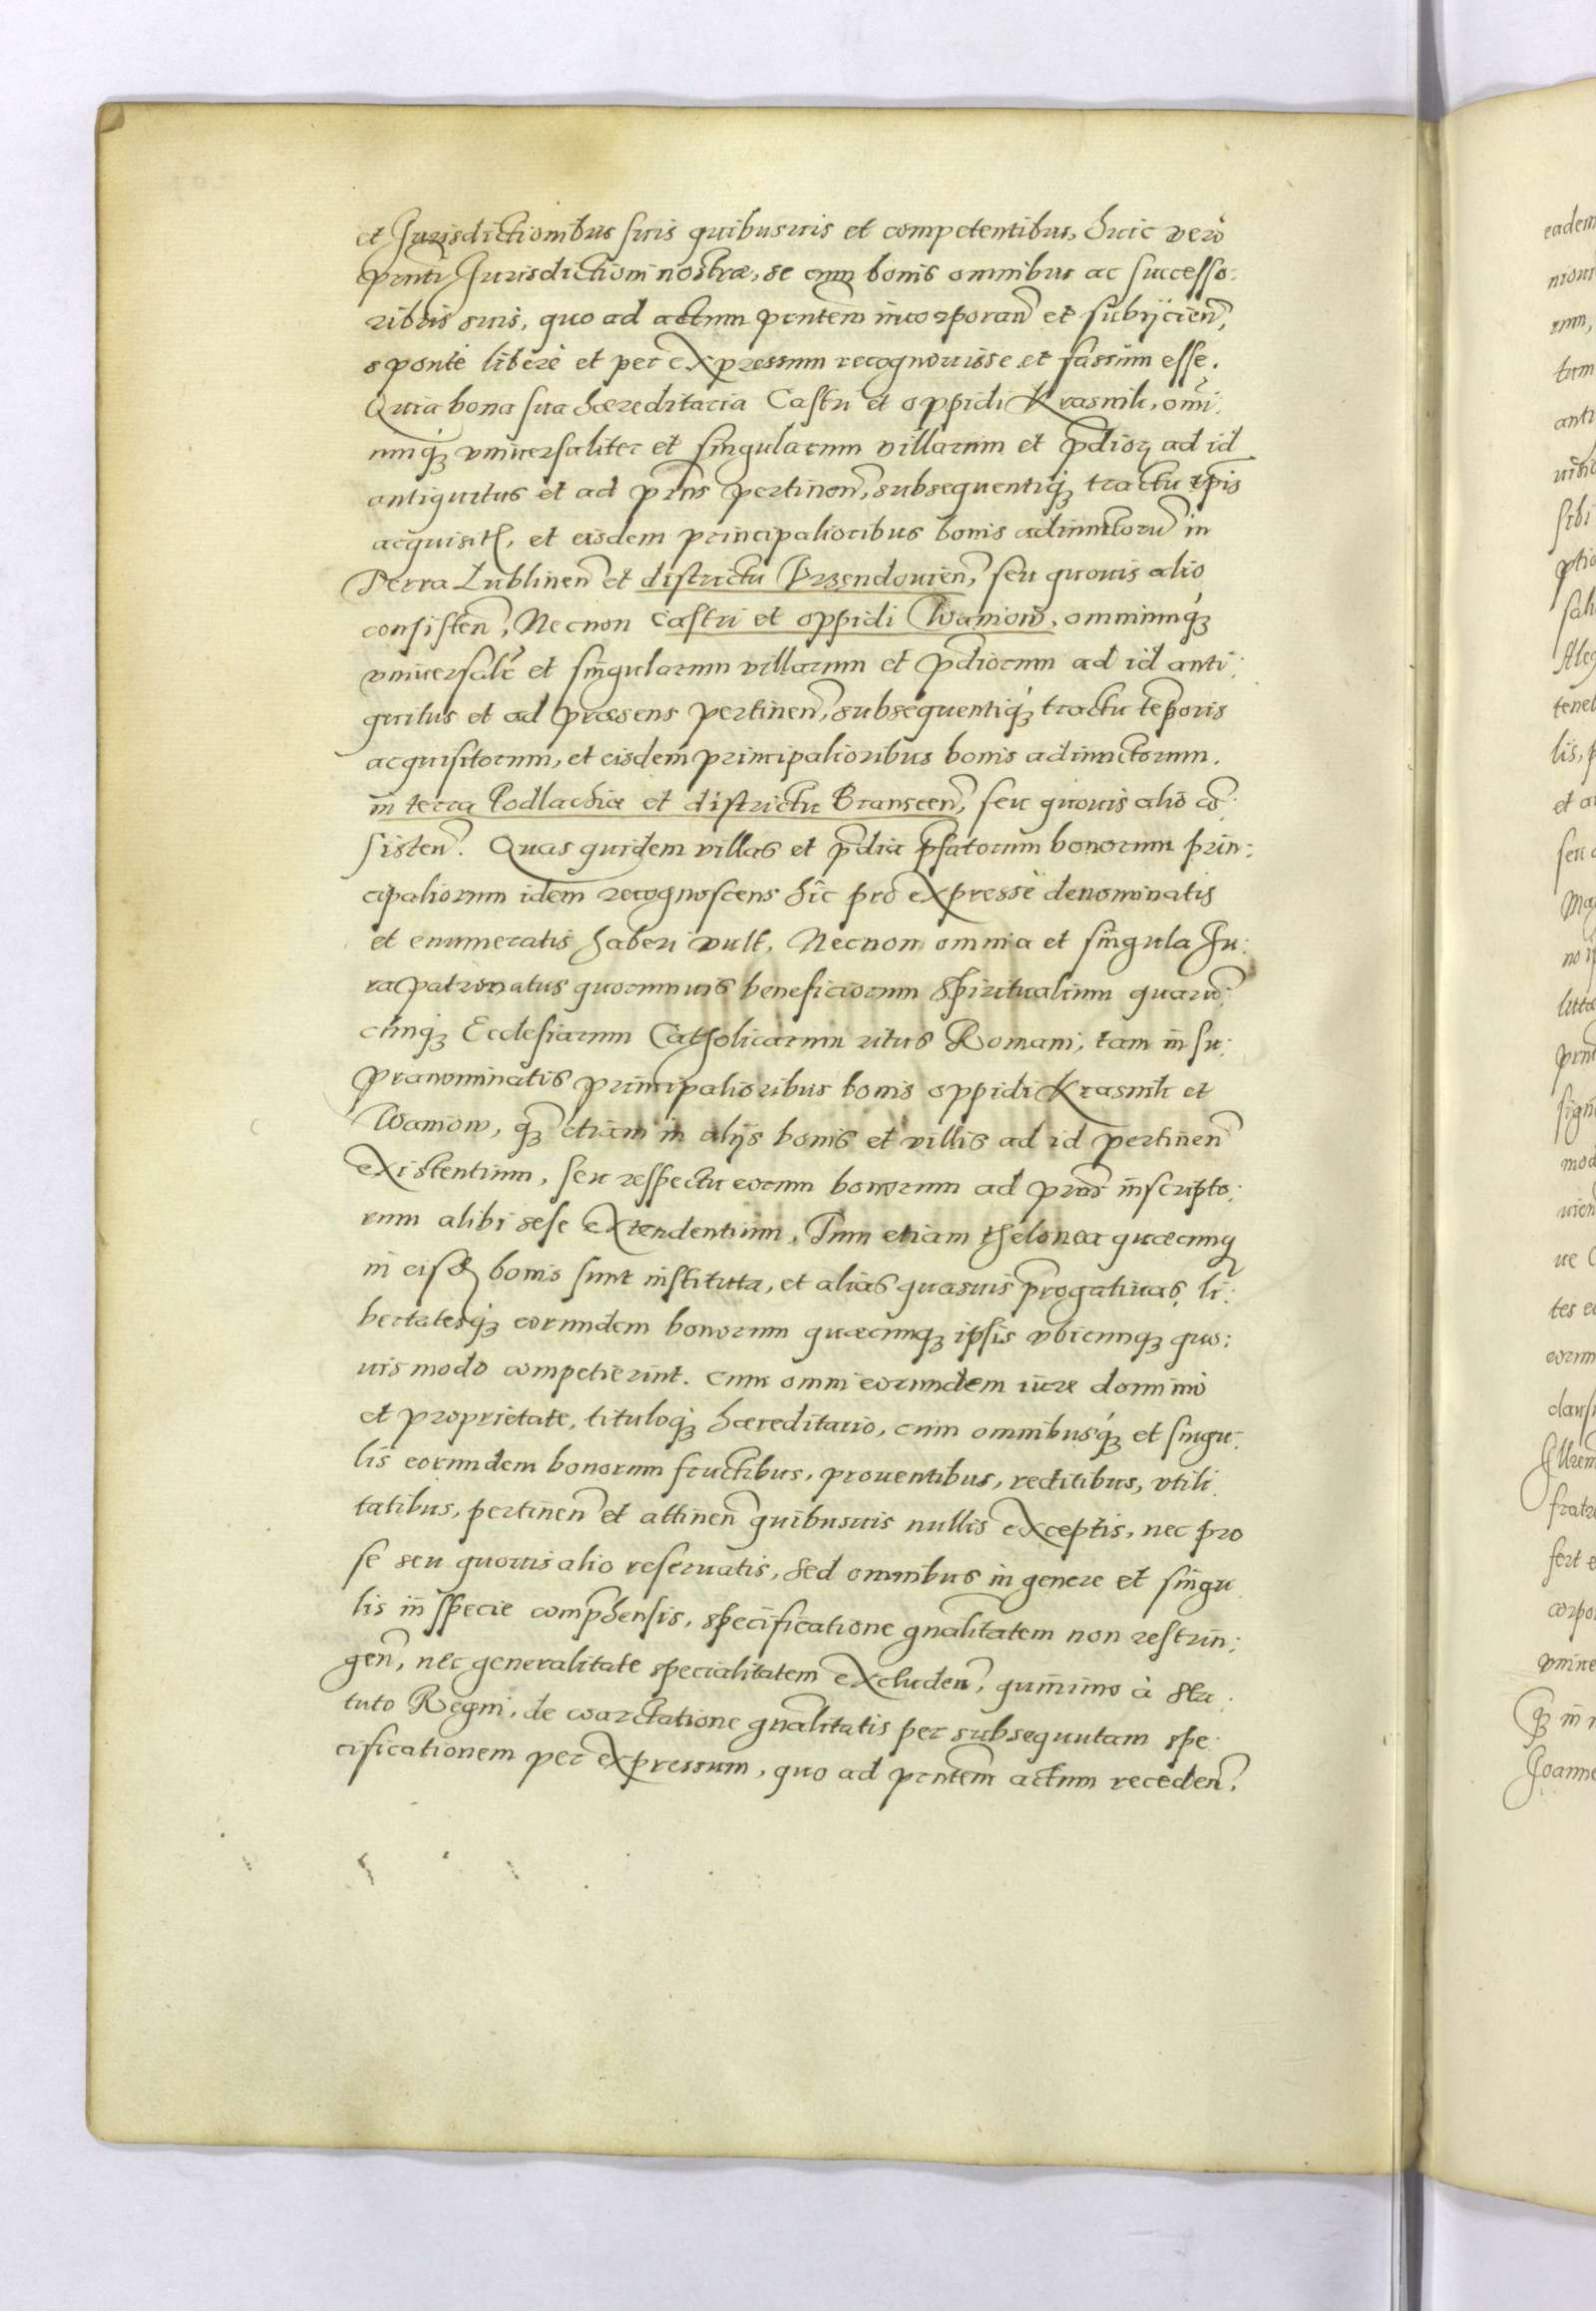 et Jurisdictionibus suis quibusuis et competentibus, huic verò
pnti Jurisdictioni nostræ, se cum bonis omnibus ac successo:
ribus suis, quo ad actum pntem incorporan̄ et subijcien̄,
spontè liberè et per expressum recognouisse et fassum esse.
Quia bona sua hæreditaria Castri et oppidi Krasnik, omī:
umq; vniuersaliter et singularum villarum et p̄dioꝝ ad id
antiquitus et ad p̄ns pertinen̄, subsequentiq; tractu tp̄is
acquisit, et eisdem principalioribus bonis adiunctorū in
Terra Lublinen̄ et districtu Vrzendouien̄, seu quouis alio
consisten̄, Necnon Castri et oppidi Waniow, omniumq;
vniuersalr̄ et singularum villarum et p̄diorum ad id anti:
quitus et ad præsens pertinen̄, subsequentiq; tractu tēporis
acquisitorum, et eisdem principalioribus bonis adiunctorum.
in terra Podlachiæ et districtu Branscen̄, seu quouis alio cō:
sisten̄. Quas quidem villas et p̄dia p̄fatorum bonorum prin:
cipaliorum idem recognoscens hîc pro expressè denominatis
et enumeratis haberi vult, Necnon omnia et singula Ju:
rapatronatus quorumuis beneficiorum spiritualium quarū:
cunq; Ecclesiarum Catholicarum ritus Romani, tam in su:
pranominatis principalioribus bonis oppidi Krasnik et
Waniow, q; etiam in alijs bonis et villis ad id pertinen̄
existentium, seu respectu eorum bonorum ad p̄ns inscripto:
rum alibi sese extendentium, Tum etiam thelonea quæcunq;
in eisd bonis sunt instituta, et alias quasuis p̄rogatiuas, li:
bertatesq; eorundem bonorum quæcunq; ipsis vbicunq; quo:
uis modo competierint. Cum omni eorundem iure dominio
et proprietate, tituloq; hæreditario, cum omnibusq; et singu:
lis eorundem bonorum fructibus, prouentibus, reditibus, vtili:
tatibus, pertinen̄ et attinen̄ quibusuis nullis exceptis, nec pro
se seu quouis alio reseruatis, sed omnibus in genere et singu
lis in specie comp̄hensis, specificatione gn̄alitatem non restrin:
gen̄, nec generalitate specialitatem excluden̄, quinimo à sta:
tuto Regni, de coarctatione gn̄alitatis per subsequutam spe:
cificationem per expressum, quo ad pntem actum receden̄.